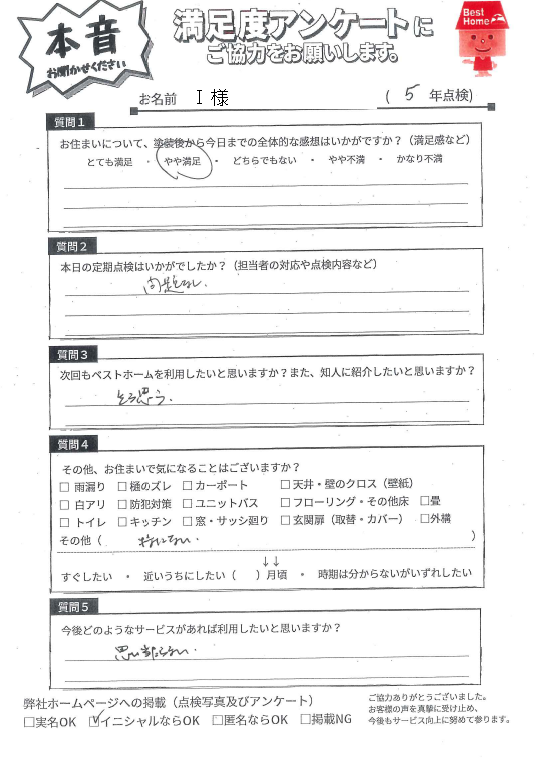 本音
お聞かせください
満足度アンケートに
ご協力をお願いします。
Best Home
お名前 I 様 ( 5 年点検)
質問1
お住まいについて、塗装後から今日までの全体的な感想はいかがですか？（満足感など）
とても満足 ・ やや満足 ・ どちらでもない ・ やや不満 ・ かなり不満
質問2
本日の定期点検はいかがでしたか？（担当者の対応や点検内容など）
問題なし.
質問3
次回もベストホームを利用したいと思いますか？また、知人に紹介したいと思いますか？
そう思う.
質問4
その他、お住まいで気になることはございますか？
□ 雨漏り □ 樋のズレ □ カーポート □ 天井・壁のクロス（壁紙）
□ 白アリ □ 防犯対策 □ ユニットバス □ フローリング・その他床 □畳
□ トイレ □ キッチン □ 窓・サッシ廻り □ 玄関扉（取替・カバー） □外構
その他（ 特にない. ）
↓↓
すぐしたい ・ 近いうちにしたい（ ）月頃 ・ 時期は分からないがいずれしたい
質問5
今後どのようなサービスがあれば利用したいと思いますか？
思い当たらない.
弊社ホームページへの掲載（点検写真及びアンケート）
□実名OK ☑イニシャルならOK □匿名ならOK □掲載NG
ご協力ありがとうございました。
お客様の声を真摯に受け止め、
今後もサービス向上に努めて参ります。